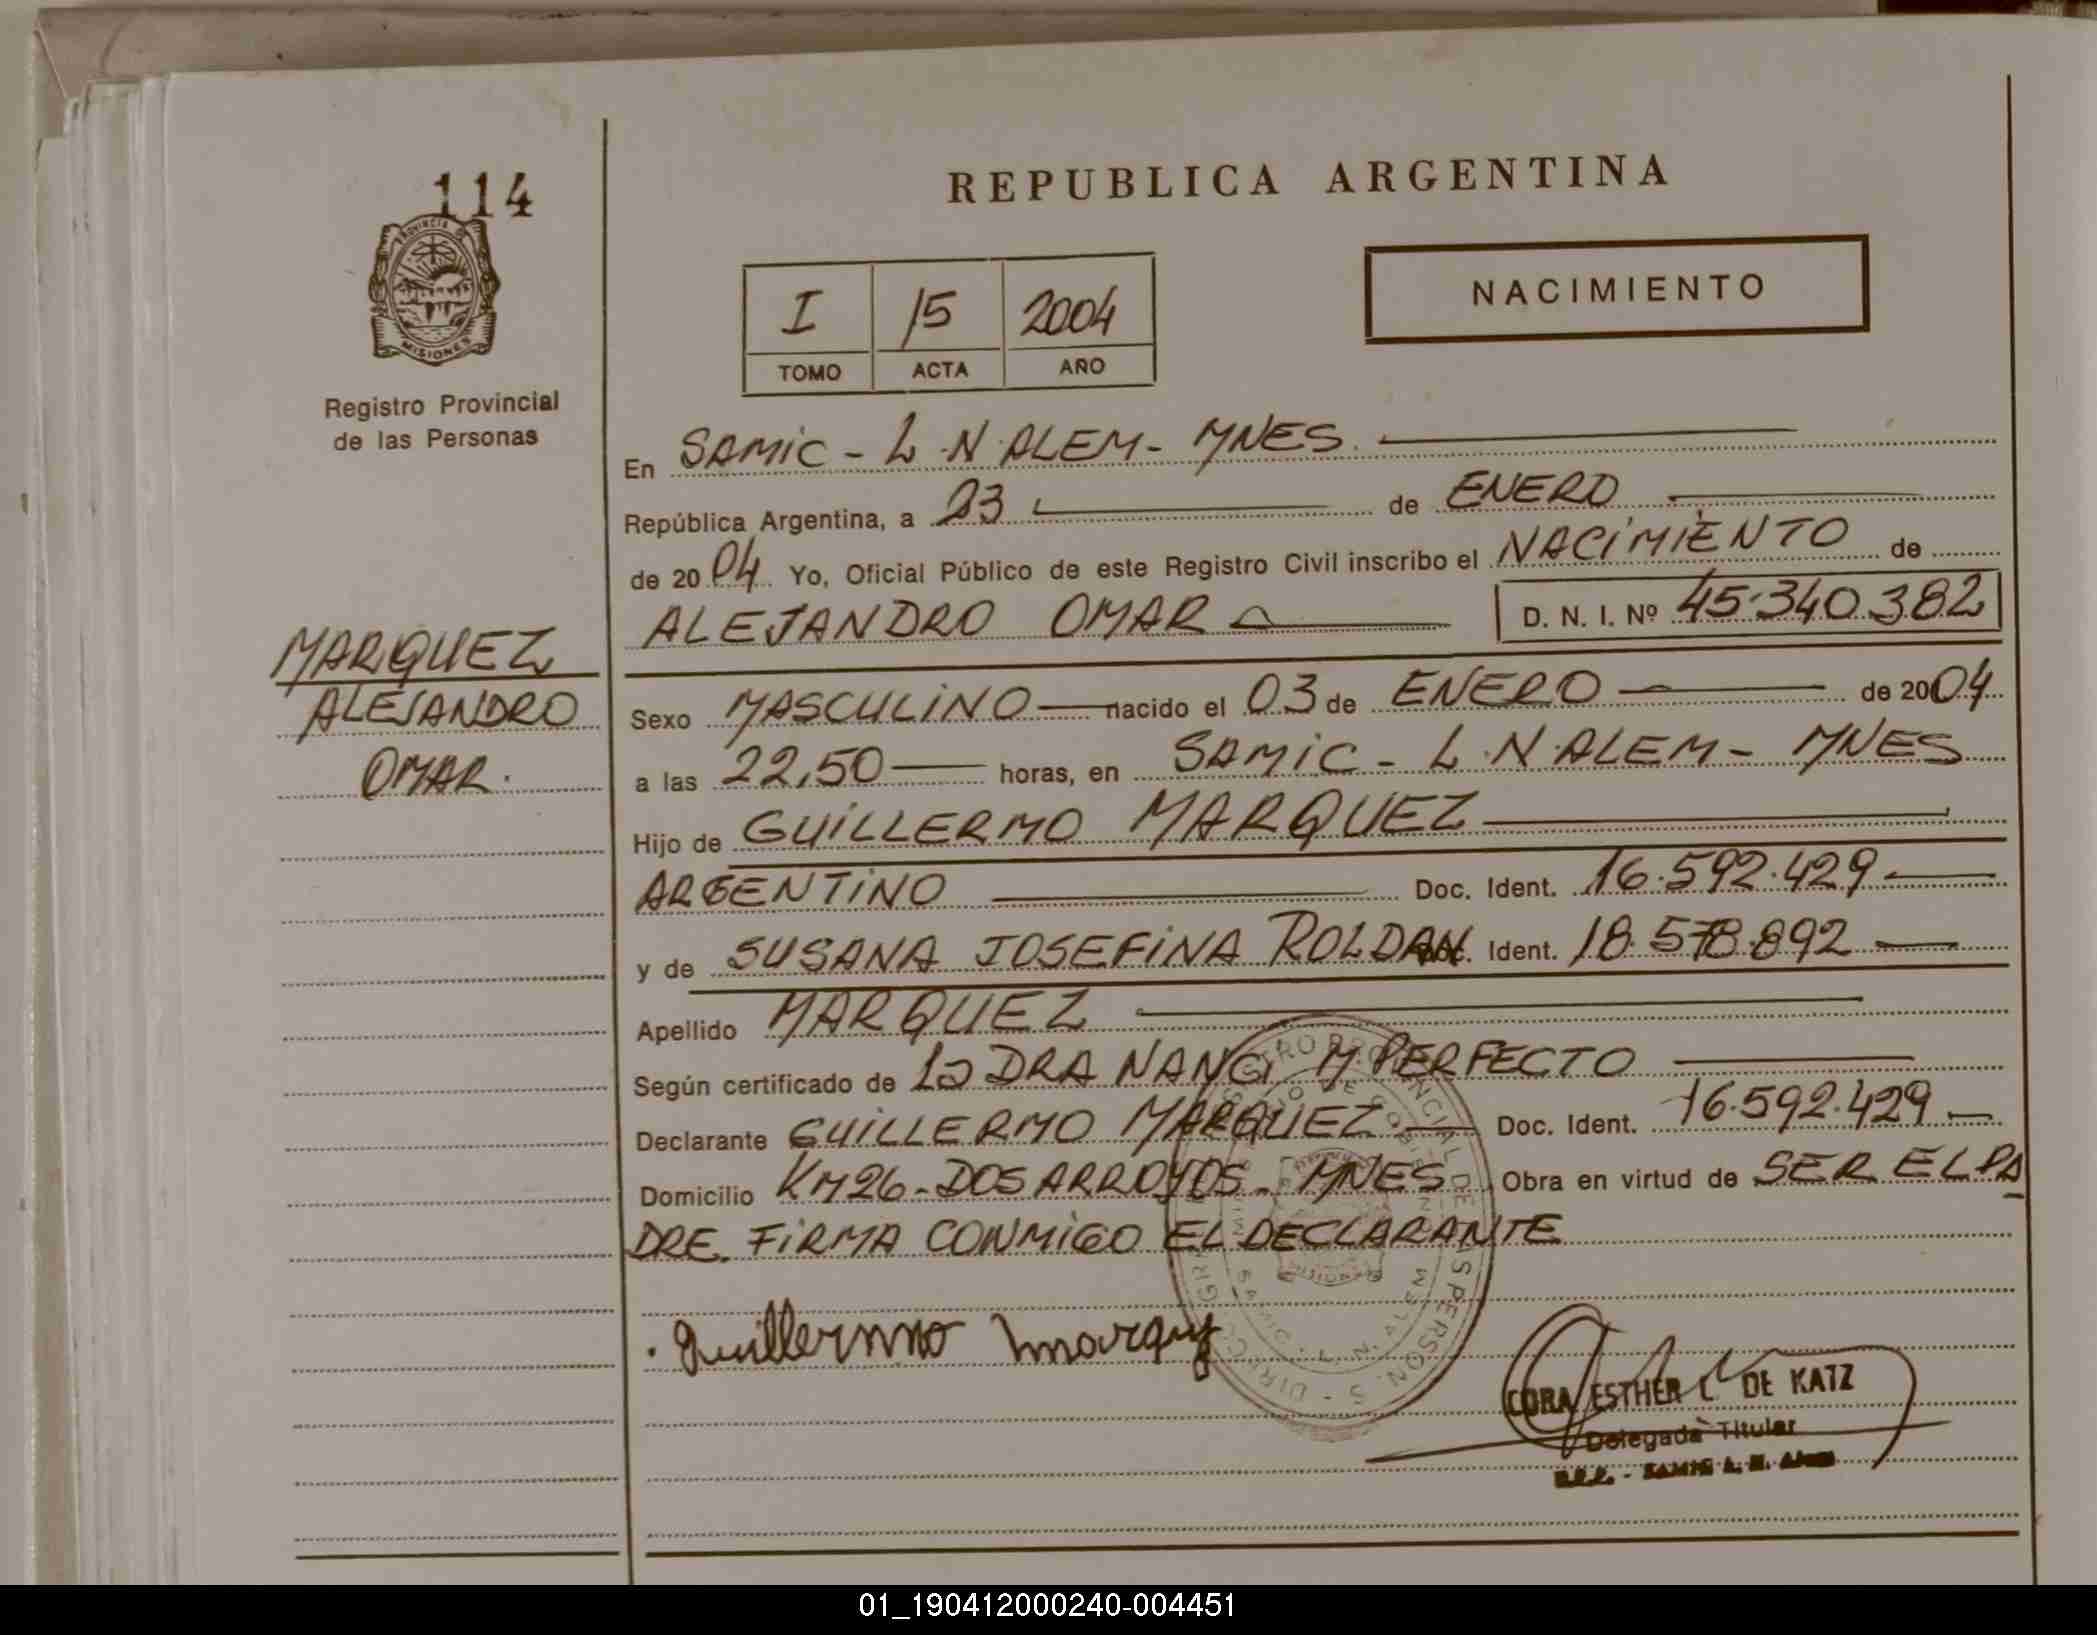 114
PROVINCIA DE
MISIONES
Registro Provincial
de las Personas
MARQUEZ
ALEJANDRO
OMAR.
REPUBLICA ARGENTINA
NACIMIENTO
I 15 2004
TOMO ACTA AÑO
En SAMIC - L. N. ALEM - MNES.
República Argentina, a 23 de ENERO
de 20 04. Yo, Oficial Público de este Registro Civil inscribo el NACIMIENTO de
ALEJANDRO OMAR D. N. I. Nº 45.340.382
Sexo MASCULINO nacido el 03 de ENERO de 20 04
a las 22,50 horas, en SAMIC - L. N. ALEM - MNES
Hijo de GUILLERMO MARQUEZ
ARGENTINO Doc. Ident. 16.592.429
y de SUSANA JOSEFINA ROLDAN Doc. Ident. 18.578.892
Apellido MARQUEZ
Según certificado de la DRA NANCI M PERFECTO
Declarante GUILLERMO MARQUEZ Doc. Ident. 16.592.429
Domicilio KM26 - DOS ARROYOS - MNES Obra en virtud de SER EL PA
DRE. FIRMA CONMIGO EL DECLARANTE
Guillermo Marquez
CORA ESTHER L. DE KATZ
Delegada Titular
SAMIC L. N. ALEM
01_190412000240-004451